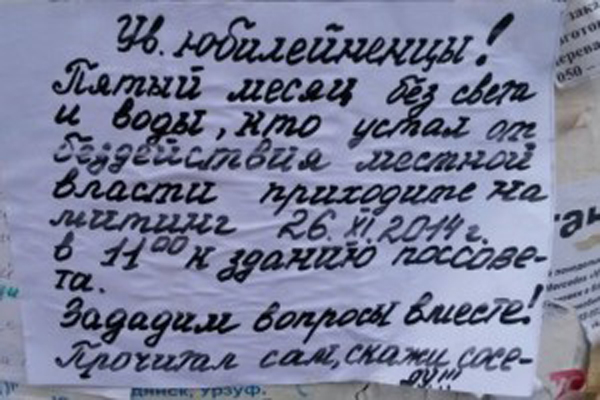 Ув. юбилейненцы!
Пятый месяц без света
и воды, кто устал от
бездействия местной
власти приходите на
митинг 26.XI.2014г.
в 11⁰⁰ к зданию поссове-
та.
Зададим вопросы вместе!
Прочитал сам, скажи сосе-
ду!!!
зака
050 –
Mercedes
дянск, Урзуф.